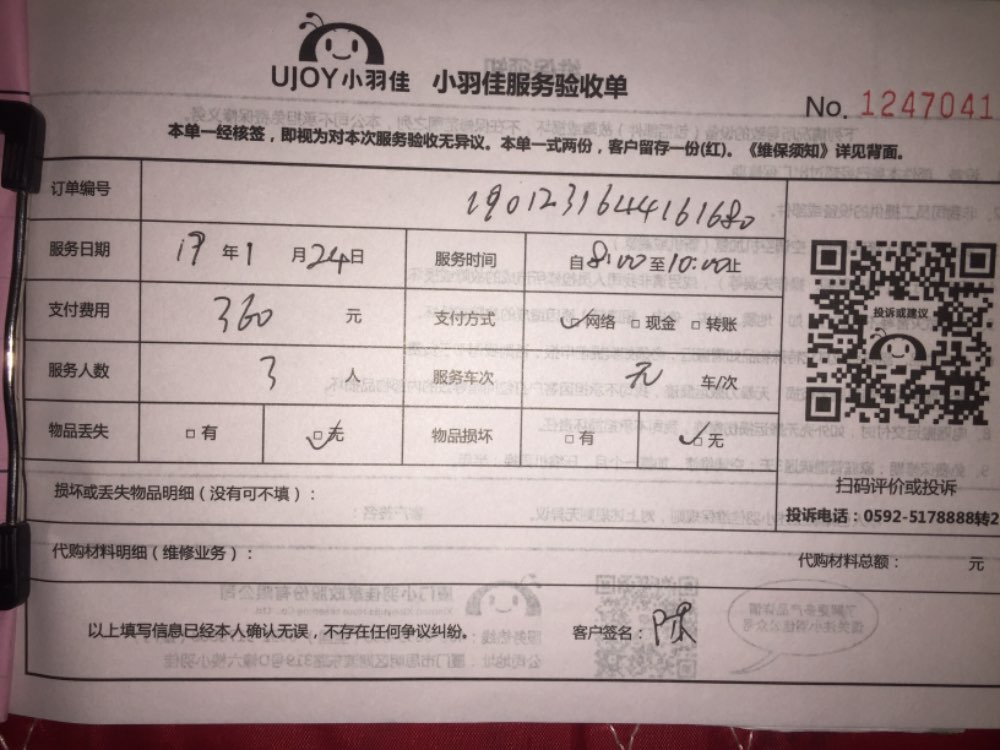 UJOY小羽佳 小羽佳服务验收单
No. 1247041
本单一经核签，即视为对本次服务验收无异议。本单一式两份，客户留存一份(红)。《维保须知》详见背面。
订单编号 1901231644161680
服务日期 19 年 1 月 24 日 服务时间 自 8:00 至 10:00 止
支付费用 360 元 支付方式 ✓□网络 □现金 □转账
服务人数 3 人 服务车次 元 车/次
物品丢失 □有 ✓□无 物品损坏 □有 ✓□无
投诉或建议
扫码评价或投诉
投诉电话：0592-5178888转2
损坏或丢失物品明细（没有可不填）：
代购材料明细（维修业务）： 代购材料总额： 元
以上填写信息已经本人确认无误，不存在任何争议纠纷。 客户签名：陈